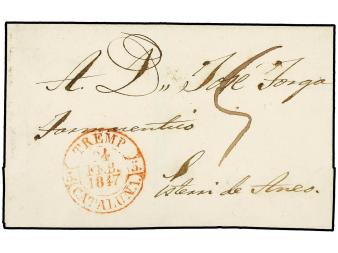 A. Dn José Jorga
Farmaceutico
Esterri de Aneo.
5
TREMP
24
FEB.
1847
CATALUÑA